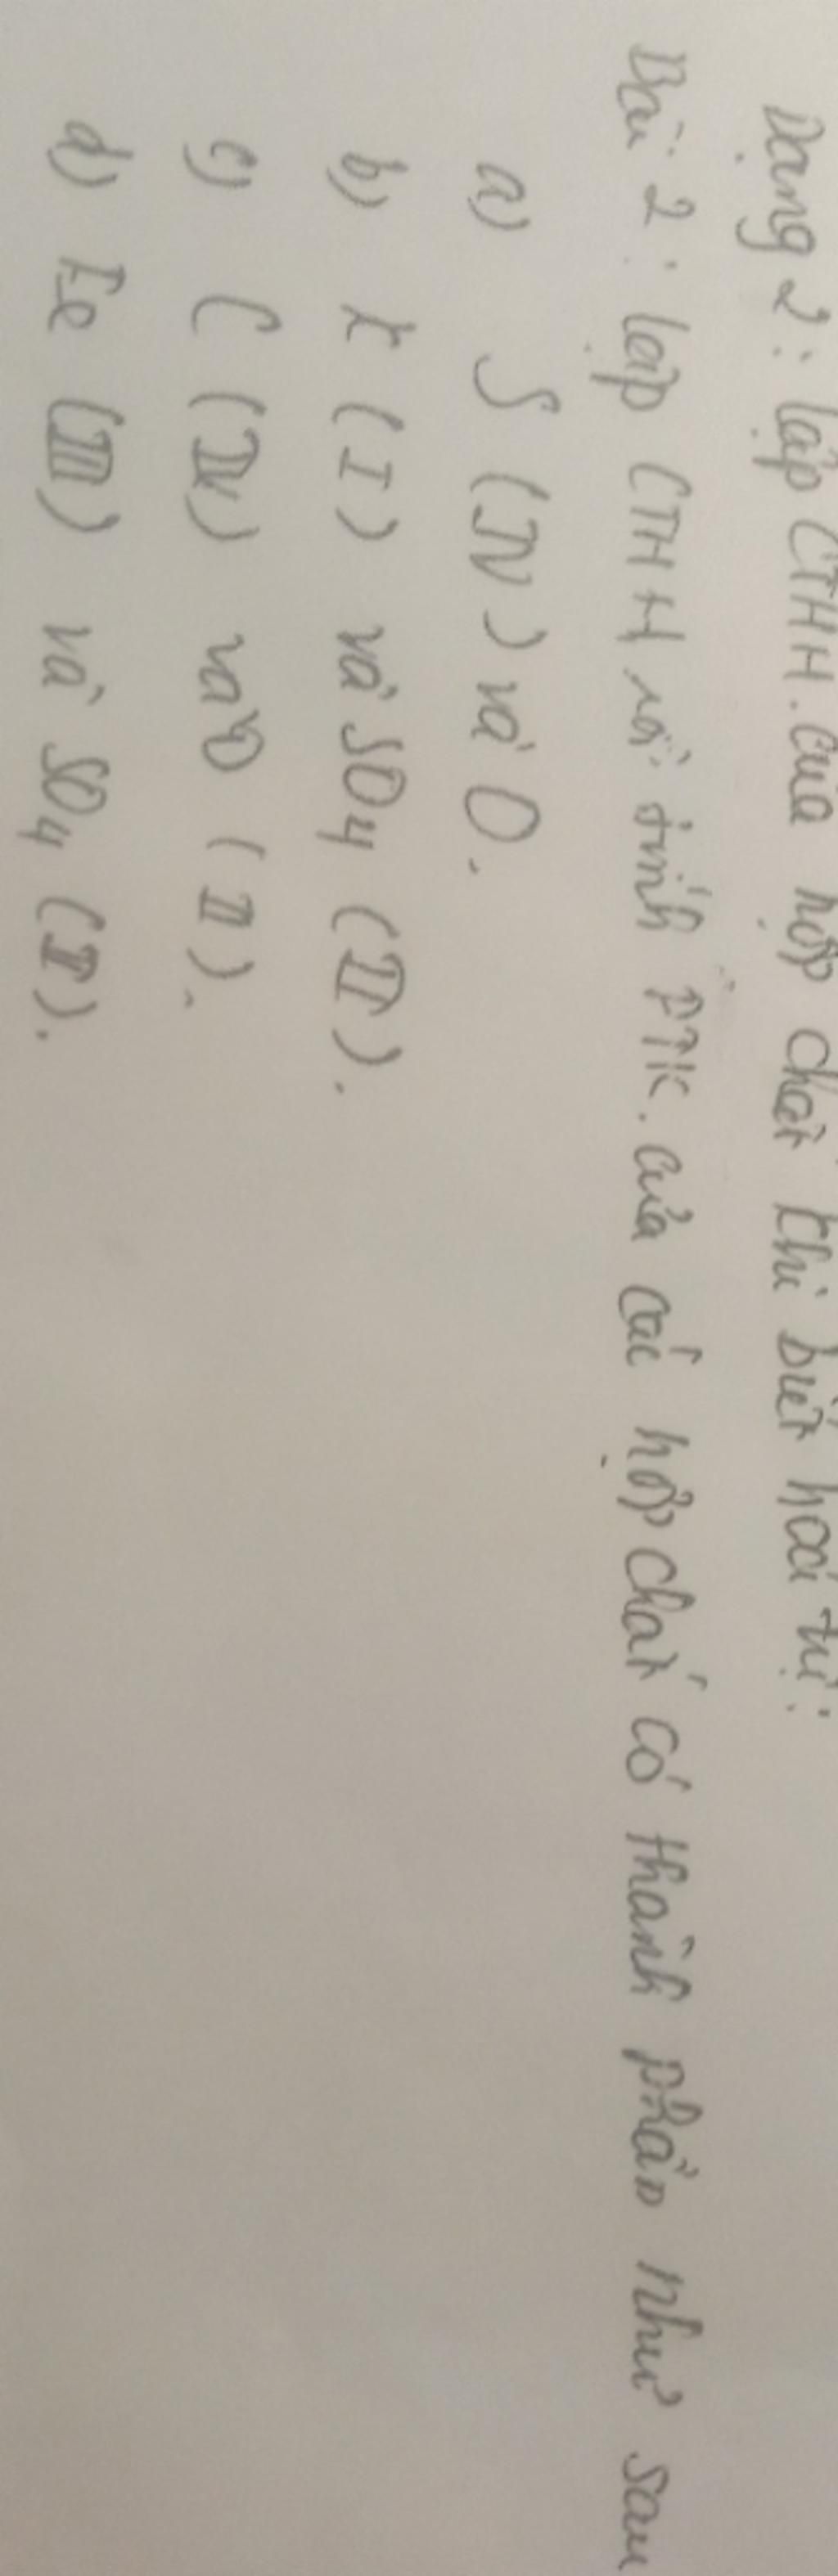 Dạng 2: lập CTHH của hợp chất khi biết hoá trị:
Bài 2: lập CTHH rồi tính PTK của các hợp chất có thành phần như sau
a) S (IV) và O.
b) K (I) và SO4 (II).
c) C (IV) và O (II).
d) Fe (III) và SO4 (II).